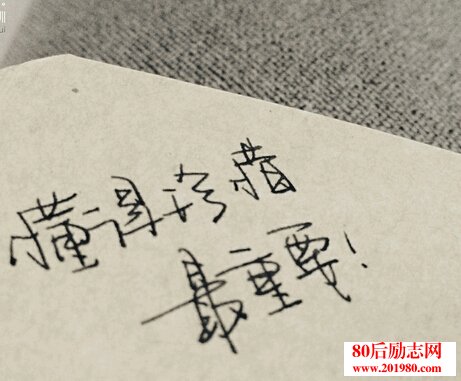 训
ui
懂得珍惜
最重要!
80后励志网
www.201980.com